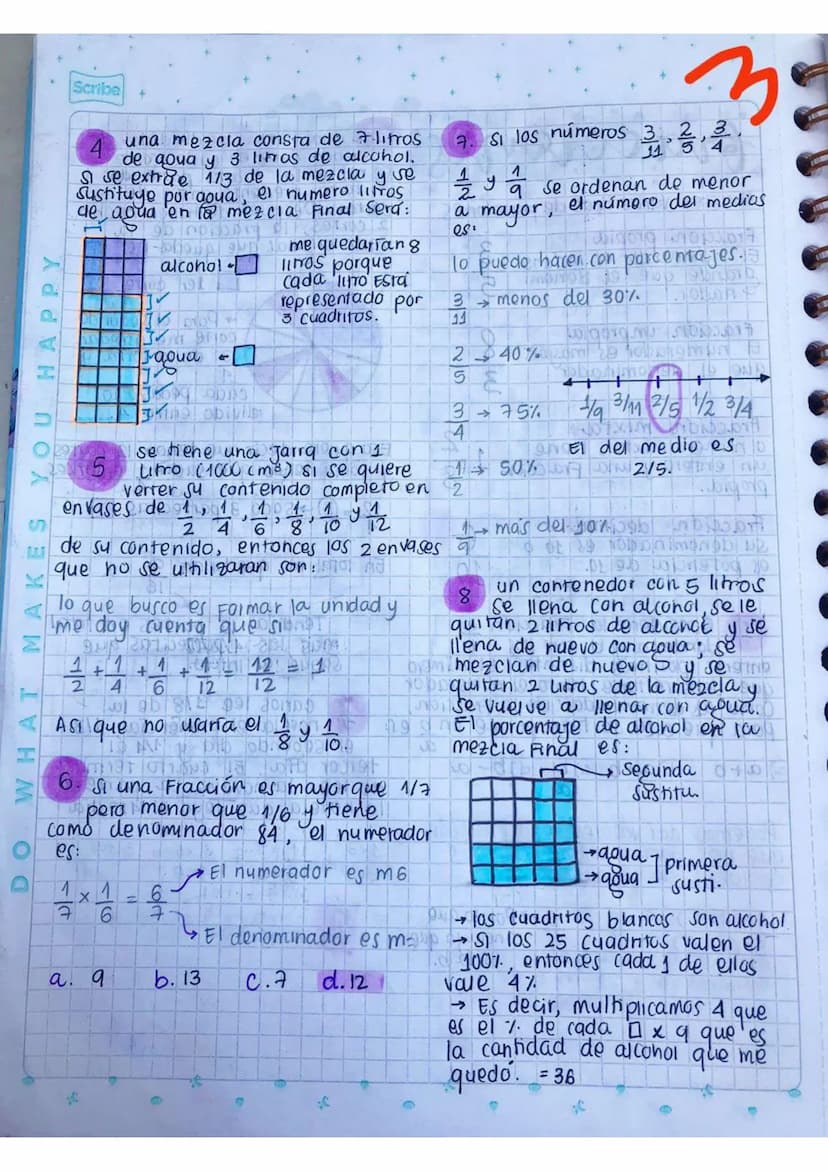 3
Scribe
DO WHAT MAKES YOU HAPPY
4 una mezcla consta de 7 litros
de agua y 3 litros de alcohol.
si se extrae 1/3 de la mezcla y se
sustituye por agua, el numero litros
de agua en la mezcla final será:
alcohol ←
me quedarían 8
litros porque
cada litro está
representado por
3 cuadritos.
agua ←
5 se tiene una jarra con 1
litro (1000 cm3) si se quiere
verter su contenido completo en
envases de 1/2, 1/4, 1/6, 1/8, 1/10 y 1/12
de su contenido, entonces los 2 envases
que no se utilizaran son:
lo que busco es formar la unidad y
me doy cuenta que si
1/2 + 1/4 + 1/6 + 1/12 = 12/12 = 1
Así que no usaría el 1/8 y 1/10.
6. si una Fracción es mayor que 1/7
pero menor que 1/6 y tiene
como denominador 84, el numerador
es:
1/7 x 1/6 = 6/7
→ El numerador es m6
→ El denominador es m=
a. 9 b. 13 c. 7 d. 12
7. si los números 3/11, 2/5, 3/4,
1/2 y 1/9 se ordenan de menor
a mayor, el número del medios
es:
lo puedo hacer con porcentajes.
3/11 → menos del 30%
2/5 → 40%
3/4 → 75%
1/2 → 50%
1/9 → más del 10%
1/9 3/11 2/5 1/2 3/4
El del medio es
2/5.
8 un contenedor con 5 litros
se llena con alcohol, se le
quitan 2 litros de alcohol y se
llena de nuevo con agua; se
mezclan de nuevo y se
quitan 2 litros de la mezcla y
se vuelve a llenar con agua.
El porcentaje de alcohol en la
mezcla final es:
→ segunda
sustitu.
→ agua
→ agua
primera
susti.
→ los cuadritos blancos son alcohol
→ si los 25 cuadritos valen el
100%, entonces cada 1 de ellos
vale 4%
→ Es decir, multiplicamos 4 que
es el % de cada □ x 9 que es
la cantidad de alcohol que me
quedó. = 36